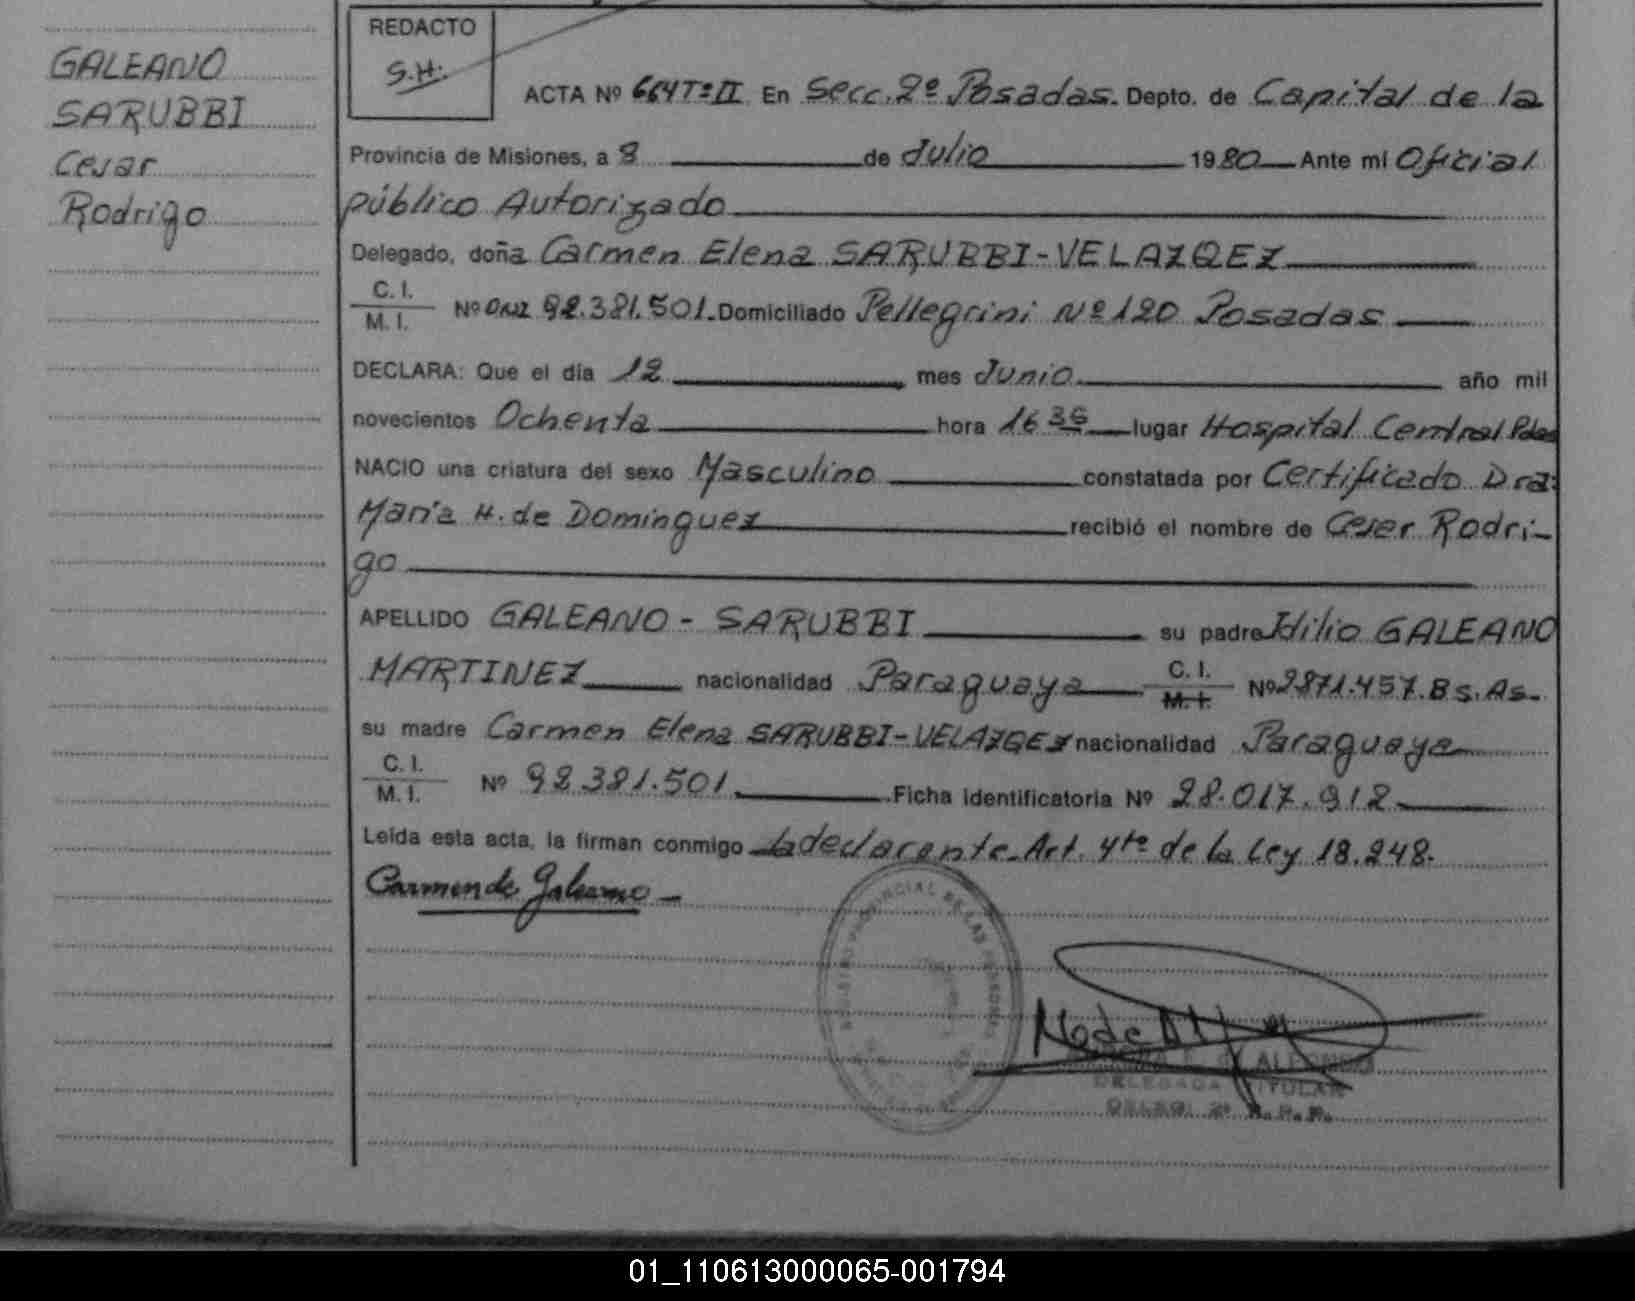 GALEANO
SARUBBI
Cesar
Rodrigo
REDACTO
S.H.
ACTA Nº 664 Tº II En Secc. 2º Posadas. Depto. de Capital de la
Provincia de Misiones, a 8 de Julio 1980 Ante mi Oficial
público Autorizado
Delegado, doña Carmen Elena SARUBBI-VELAZQEZ
C. I.
M. I.
Nº 92.381.501. Domiciliado Pellegrini Nº 120 Posadas
DECLARA: Que el día 12 mes Junio año mil
novecientos Ochenta hora 16 35 lugar Hospital Central Pdas
NACIO una criatura del sexo Masculino constatada por Certificado Dra:
María H. de Dominguez recibió el nombre de Cesar Rodri-
go
APELLIDO GALEANO - SARUBBI su padre Idilio GALEANO
MARTINEZ nacionalidad Paraguaya C. I. M. I. Nº 2871.457. Bs. As.
su madre Carmen Elena SARUBBI-VELAZQEZ nacionalidad Paraguaya
C. I.
M. I.
Nº 92.381.501 Ficha Identificatoria Nº 28.017.912
Leída esta acta, la firman conmigo la declarante. Art. 4to de la Ley 18.248.
Carmen de Galeano
REGISTRO PROVINCIAL DE LAS PERSONAS
ALFONSO
DELEGADA TITULAR
DELEG. 2º R. P. P.
01_110613000065-001794